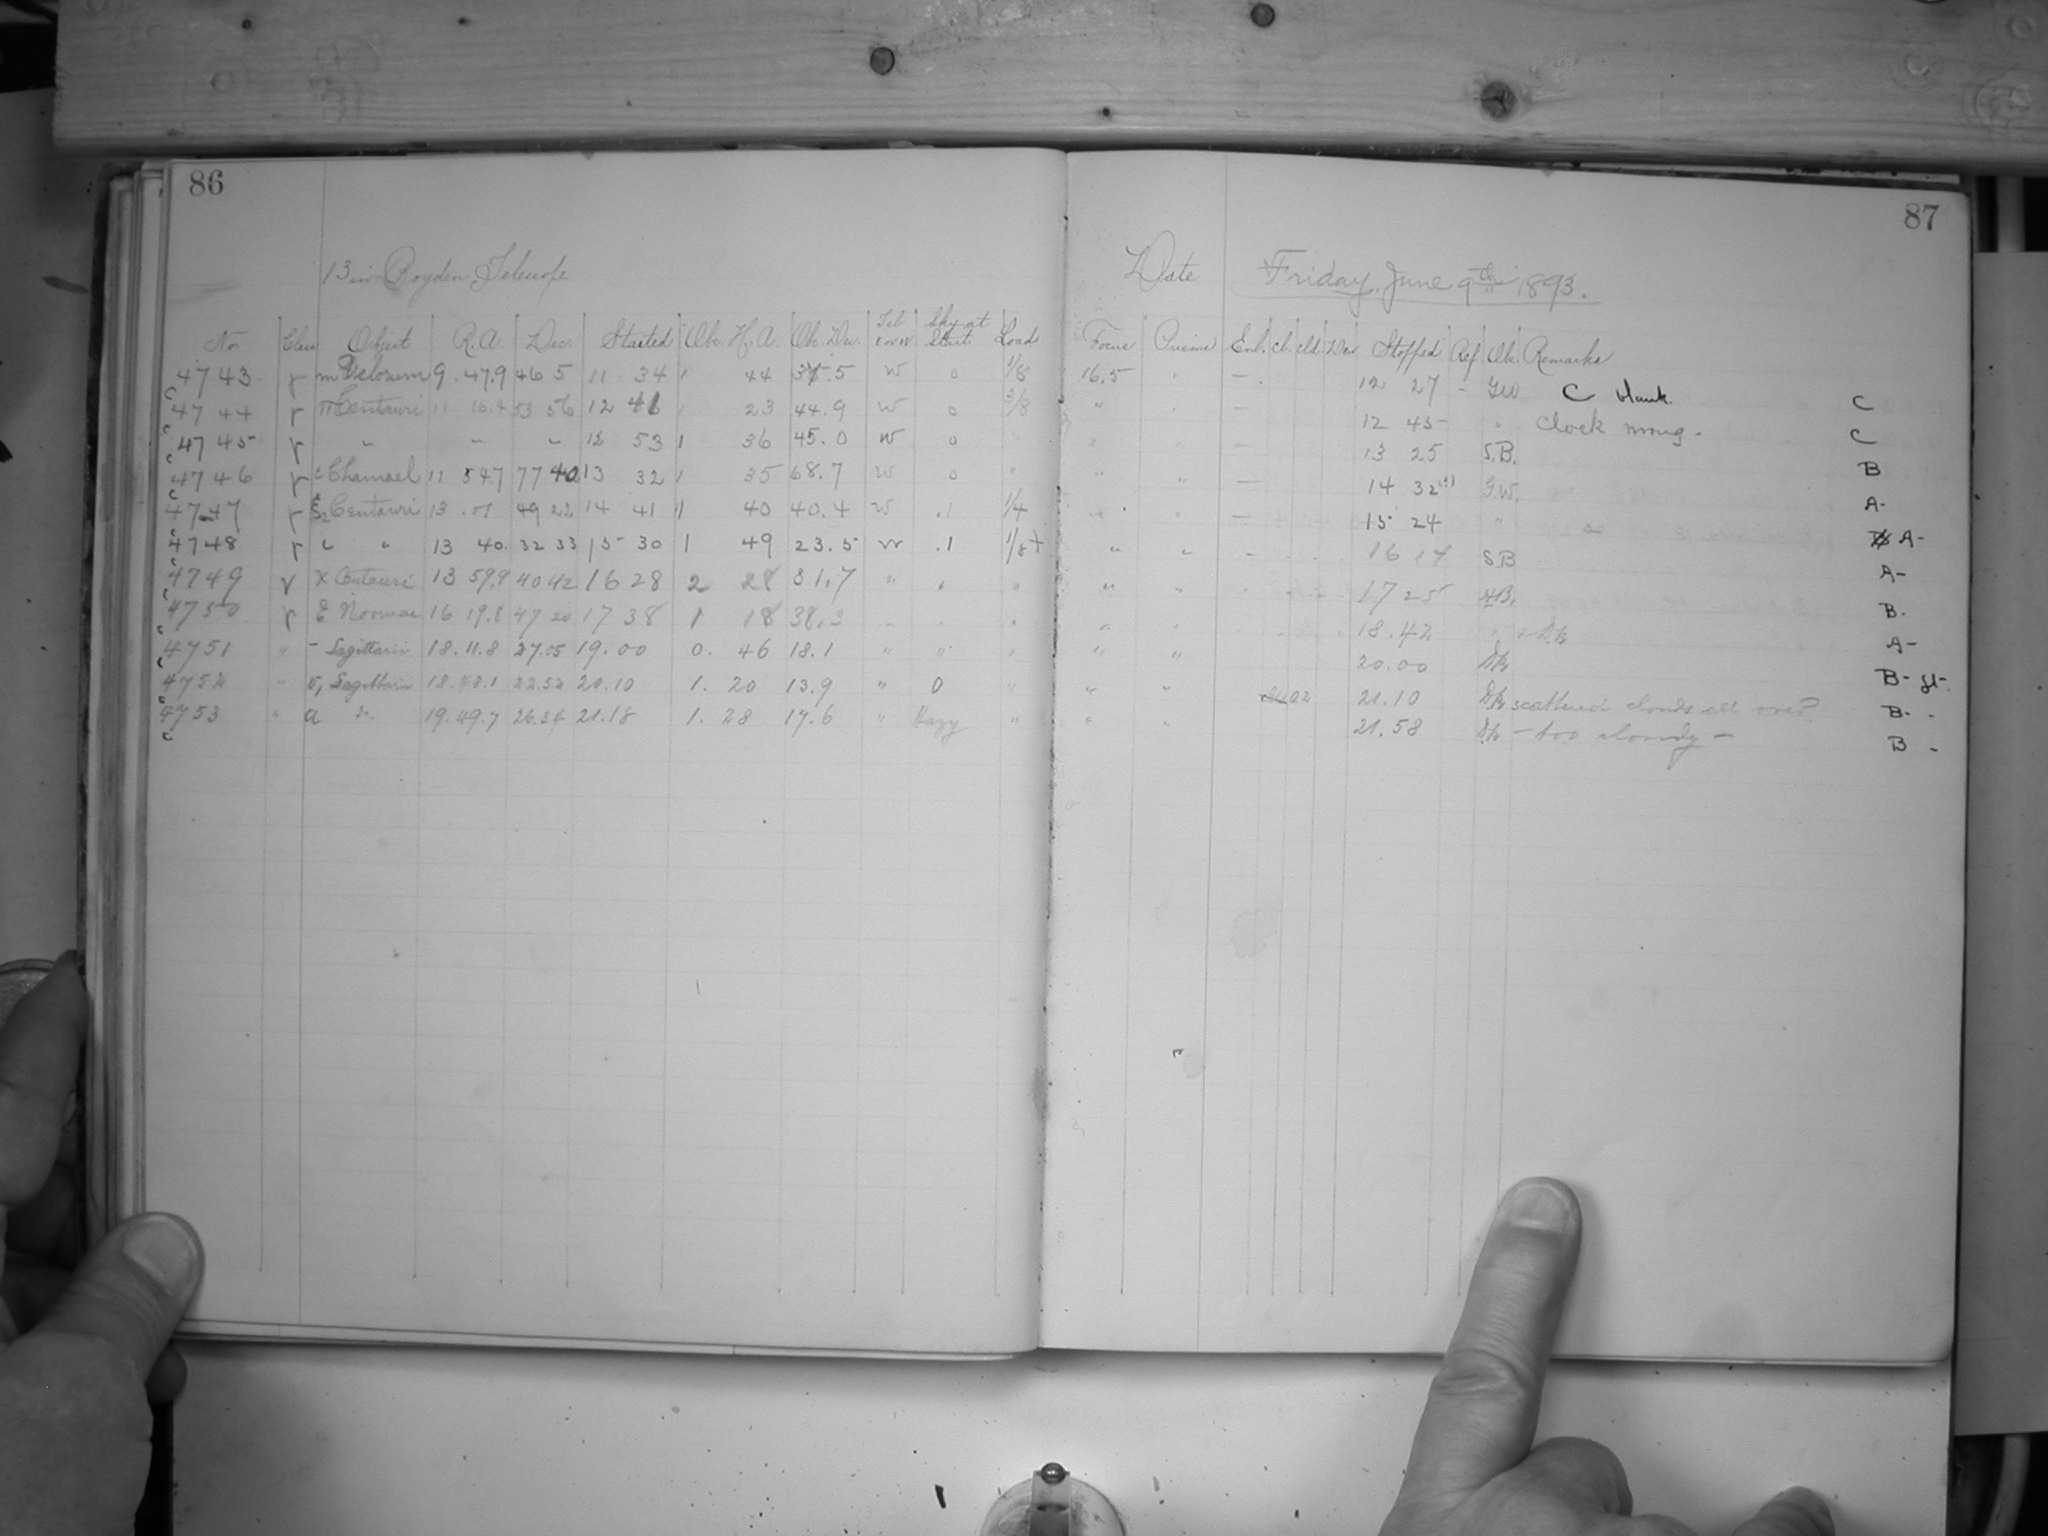 86
13 in Boyden Telescope
No Class Object R.A. Dec. Started Obs. H.A. Obs. Dec. Tel E or W Sky at Start Load
4743 r m Velorum 9 47.9 46 5 11 34 1 44 37.5 W 0 1/8
4744 r π Centauri 11 16.4 53 56 12 41 1 23 44.9 W 0 3/8
4745 r " " " 12 53 1 36 45.0 W 0 "
4746 r ε Chamael 11 54.7 77 40 13 32 1 35 68.7 W 0 "
4747 r ξ2 Centauri 13 .01 49 22 14 41 1 40 40.4 W .1 1/4
4748 r " " 13 40. 32 33 15 30 1 49 23.5 W .1 1/8+
4749 r χ Centauri 13 59.9 40 42 16 28 2 28 31.7 " " "
4750 r ε Normae 16 19.8 47 20 17 38 1 18 38.3 " " "
4751 " - Sagittarii 18.11.8 27.05 19.00 0. 46 18.1 " " "
4752 " υ, Sagittarii 18.48.1 22.52 20.10 1. 20 13.9 " 0 "
4753 " a " 19.49.7 26.34 21.18 1. 28 17.6 " Hazy "
87
Date Friday, June 9th 1893.
Focus Prisms Enl. Cl. Cld. Dev Stopped Ref. Ob. Remarks
16.5 " - 12 27 - GW C blank. C
" - 12 45 " Clock wrong - C
" - 13 25 S.B. B
" " - 14 32 G.W. A-
" - 15 24 " A-
" " - 16 17 S.B A-
" " 17 25 H.B. B.
" " 18.42 A-
" " 20.00 B-
" " 02 21.10 scattered clouds all over? B. -
" " 21.58 - too cloudy - B -